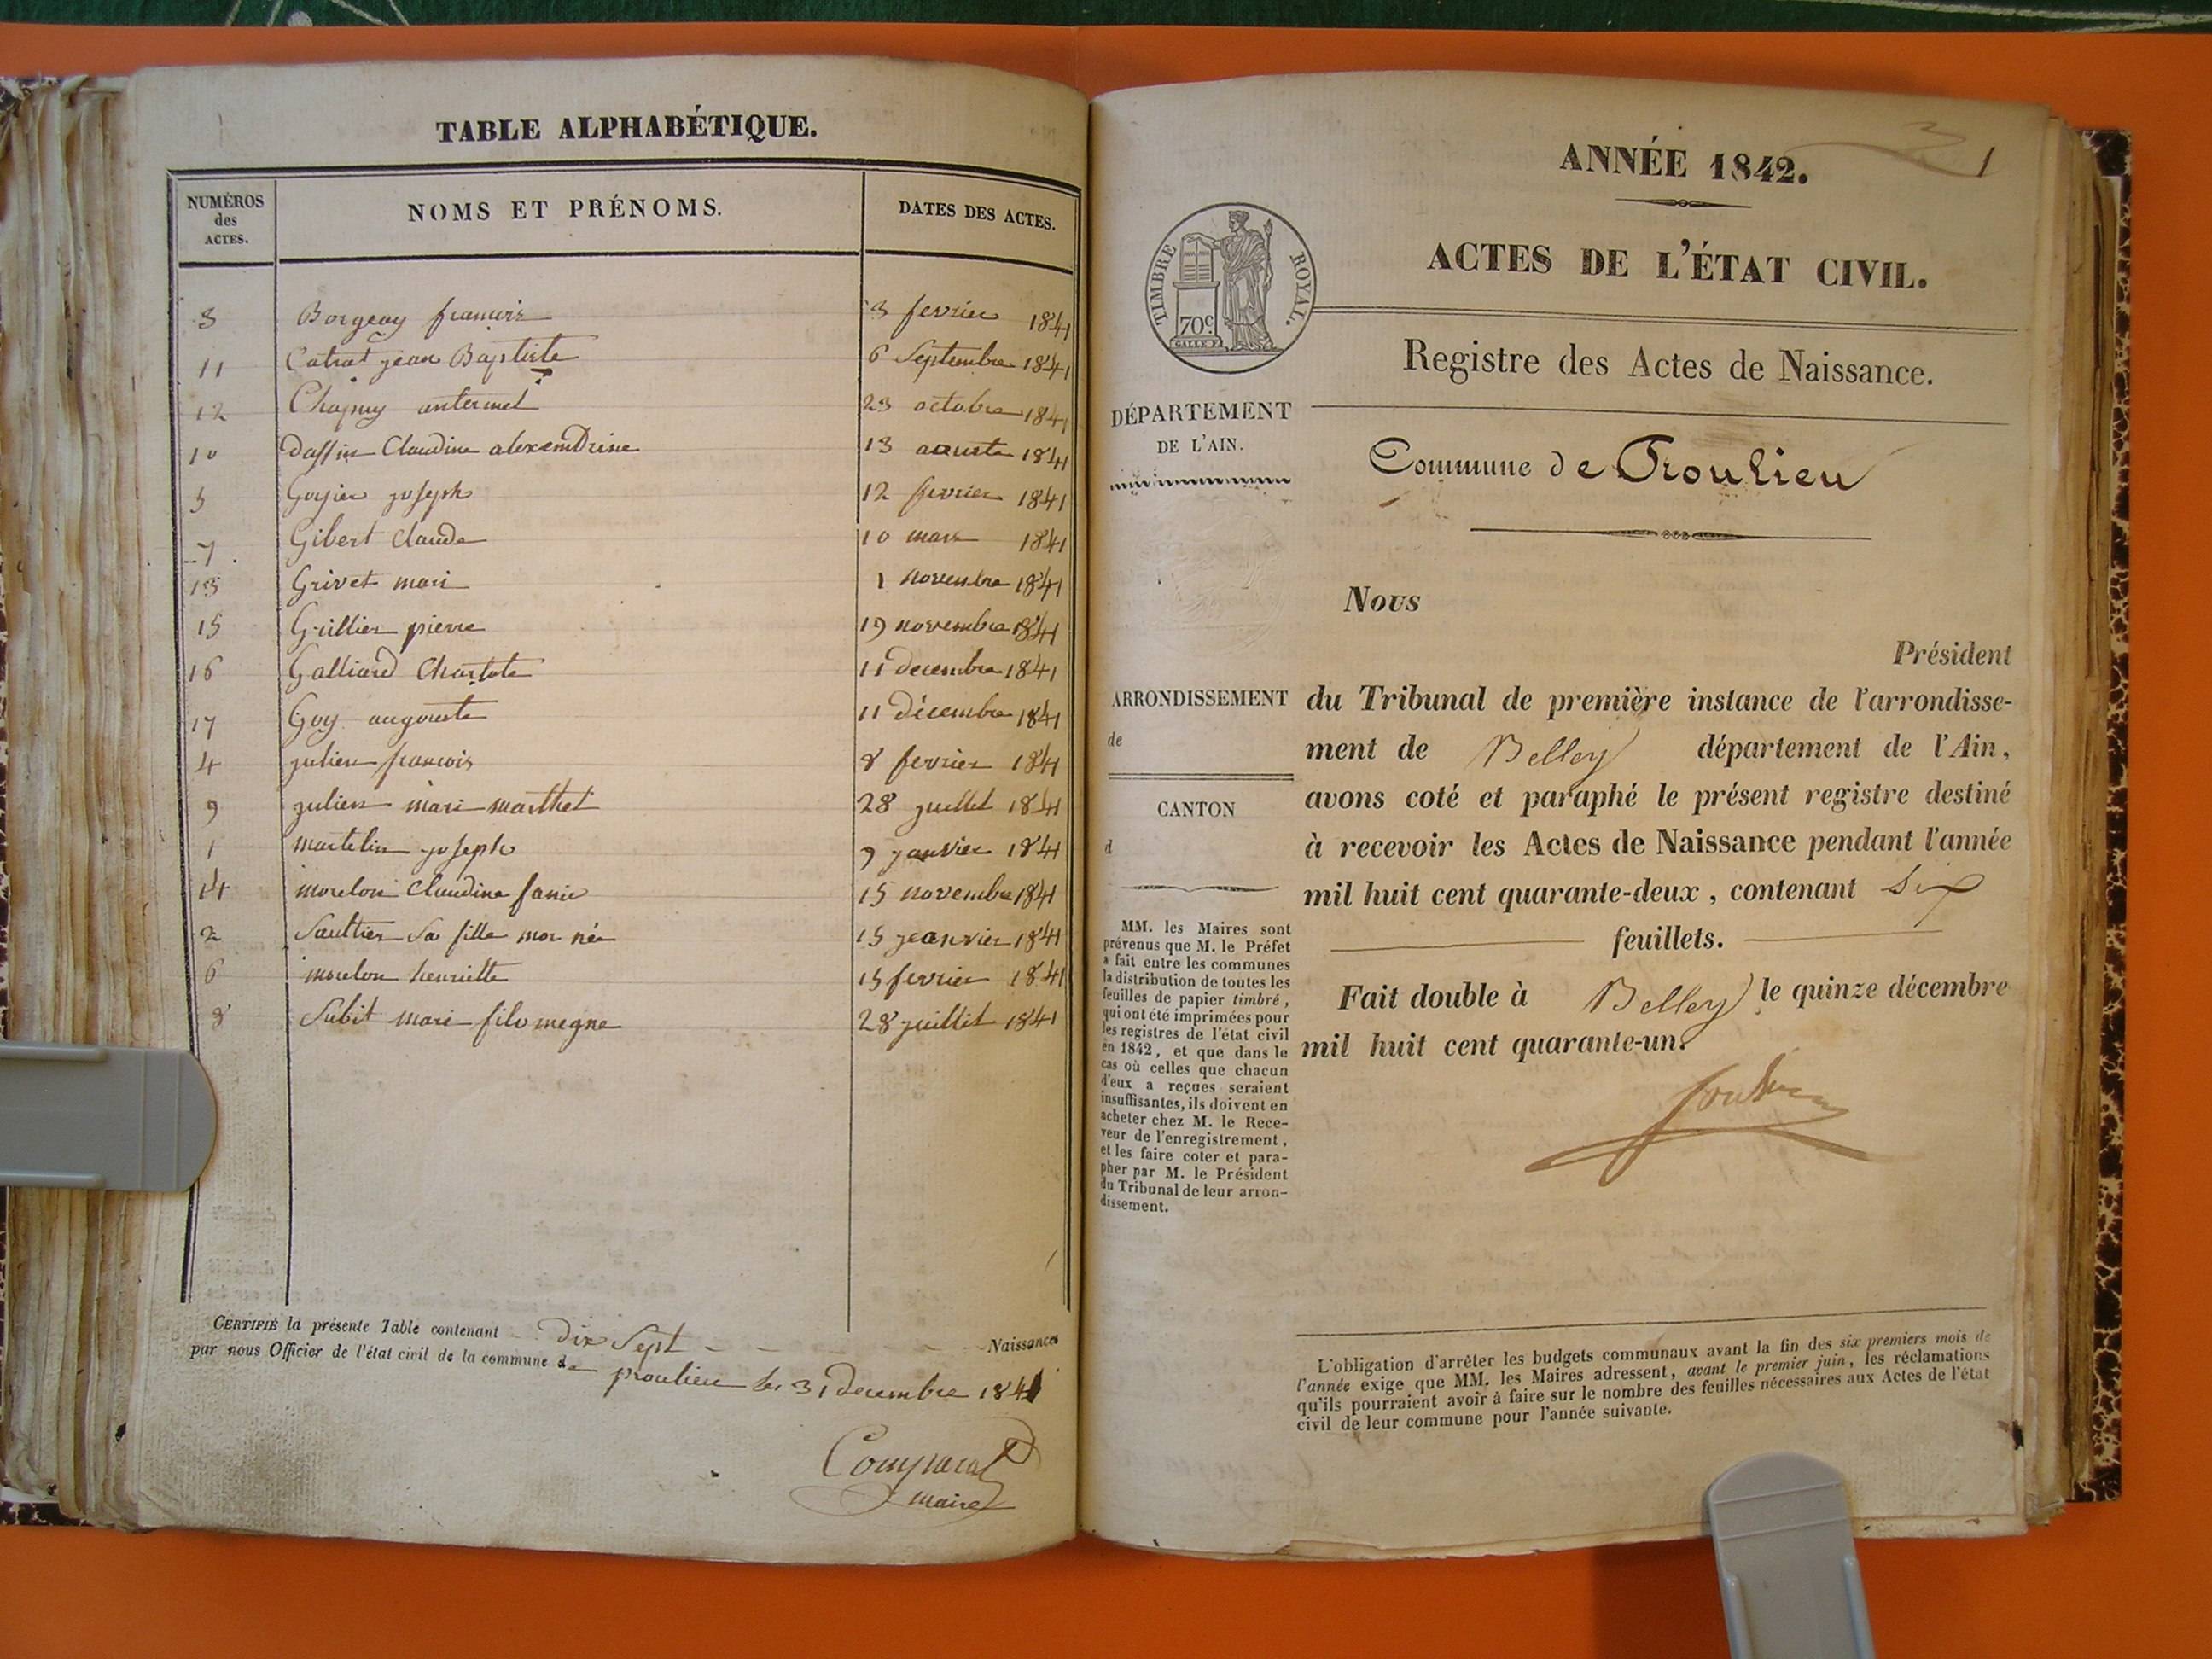 TABLE ALPHABÉTIQUE.
NUMÉROS des ACTES. NOMS ET PRÉNOMS. DATES DES ACTES.
3 Borgeay francois 3 fevrier 1841
11 Catrat jean Baptiste 6 Septembre 1841
12 Chapuy antermet 23 octobre 1841
10 Claudine alexendrine 13 aouste 1841
5 Goyier joseph 12 fevrier 1841
7 Gibert claude 10 mars 1841
13 Grivet mari 1 novembre 1841
15 Grillier pierre 19 novembre 1841
16 Galliard Charlote 11 decembre 1841
17 Goy augouste 11 décembre 1841
4 julien francois 8 fevrier 1841
9 julien mari marthet 28 juillet 1841
1 martelin joseph 9 janvier 1841
14 morelon Claudine fanie 15 novembre 1841
2 Saultier Sa fille mor née 15 jeanvier 1841
6 morelon henriette 15 fevrier 1841
8 Subit mari filomegne 28 juillet 1841
CERTIFIÉ la présente Table contenant dix Sept Naissances
par nous Officier de l'état civil de la commune de proulieu le 31 decembre 1841
Comparat
maire
1
ANNÉE 1842.
ACTES DE L'ÉTAT CIVIL.
TIMBRE ROYAL.
70c
Registre des Actes de Naissance.
DÉPARTEMENT
DE L'AIN.
Commune de Proulieu
Nous
Président
ARRONDISSEMENT
de
CANTON
d
du Tribunal de première instance de l'arrondisse-
ment de Belley département de l'Ain,
avons coté et paraphé le présent registre destiné
à recevoir les Actes de Naissance pendant l'année
mil huit cent quarante-deux, contenant six
feuillets.
Fait double à Belley le quinze décembre
mil huit cent quarante-un.
MM. les Maires sont
prévenus que M. le Préfet
a fait entre les communes
la distribution de toutes les
feuilles de papier timbré,
qui ont été imprimées pour
les registres de l'état civil
en 1842, et que dans le
cas où celles que chacun
d'eux a reçues seraient
insuffisantes, ils doivent en
acheter chez M. le Rece-
veur de l'enregistrement,
et les faire coter et para-
pher par M. le Président
du Tribunal de leur arron-
dissement.
L'obligation d'arrêter les budgets communaux avant la fin des six premiers mois de
l'année exige que MM. les Maires adressent, avant le premier juin, les réclamations
qu'ils pourraient avoir à faire sur le nombre des feuilles nécessaires aux Actes de l'état
civil de leur commune pour l'année suivante.